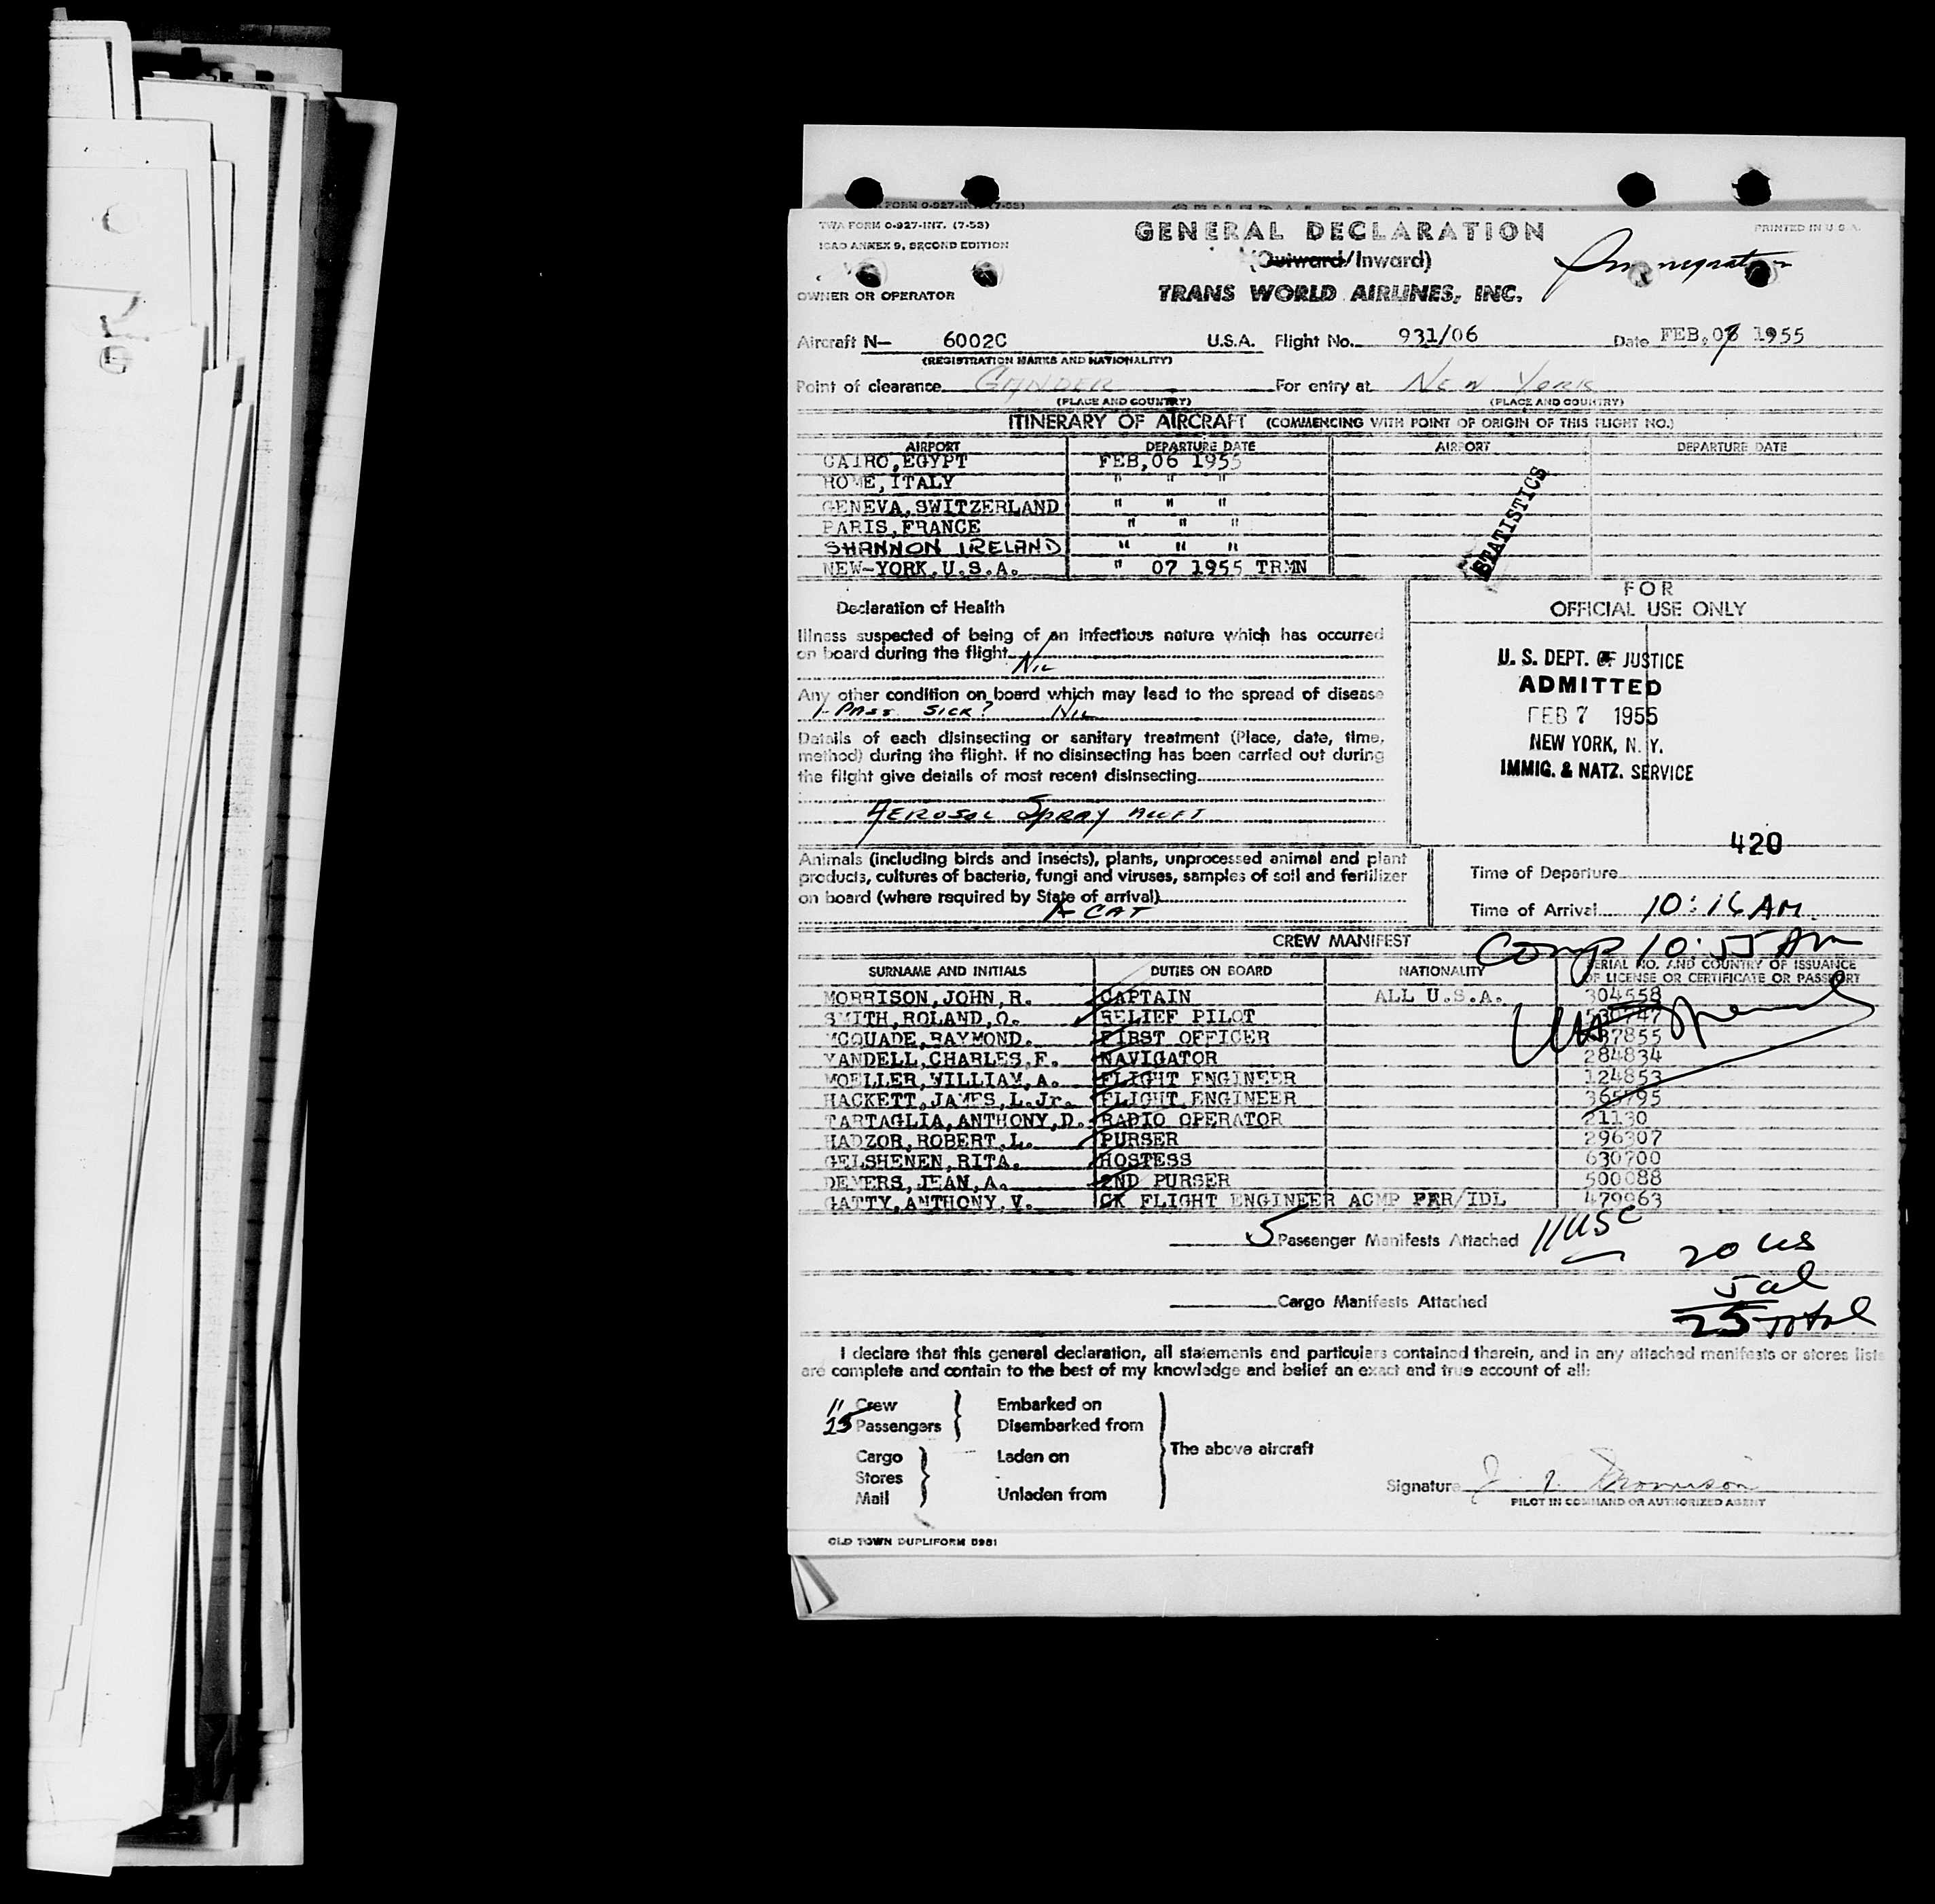 TWA FORM O-927-INT. (7-53)
ICAO ANNEX 9, SECOND EDITION
GENERAL DECLARATION
PRINTED IN U.S.A.
(Outward/Inward)
Immigration
OWNER OR OPERATOR
TRANS WORLD AIRLINES, INC.
Aircraft N— 6002C U.S.A. Flight No. 931/06 Date FEB,07 1955
(REGISTRATION MARKS AND NATIONALITY)
Point of clearance GANDER For entry at NEW YORK
(PLACE AND COUNTRY) (PLACE AND COUNTRY)
ITINERARY OF AIRCRAFT (COMMENCING WITH POINT OF ORIGIN OF THIS FLIGHT NO.)
AIRPORT DEPARTURE DATE AIRPORT DEPARTURE DATE
CAIRO,EGYPT FEB,06 1955
ROME,ITALY " " "
GENEVA,SWITZERLAND " " "
PARIS,FRANCE " " "
SHANNON IRELAND " " "
NEW-YORK,U.S.A. " 07 1955 TRMN
STATISTICS
FOR
OFFICIAL USE ONLY
Declaration of Health
Illness suspected of being of an infectious nature which has occurred
on board during the flight
NIL
Any other condition on board which may lead to the spread of disease
1- PASS SICK? NIL
Details of each disinsecting or sanitary treatment (Place, date, time,
method) during the flight. If no disinsecting has been carried out during
the flight give details of most recent disinsecting
AEROSOL SPRAY
U. S. DEPT. OF JUSTICE
ADMITTED
FEB 7 1955
NEW YORK, N. Y.
IMMIG. & NATZ. SERVICE
420
Animals (including birds and insects), plants, unprocessed animal and plant
products, cultures of bacteria, fungi and viruses, samples of soil and fertilizer
on board (where required by State of arrival)
1- CAT
Time of Departure
Time of Arrival 10:16 AM.
Comp 10:55 AM
CREW MANIFEST
SURNAME AND INITIALS DUTIES ON BOARD NATIONALITY SERIAL NO. AND COUNTRY OF ISSUANCE
OF LICENSE OR CERTIFICATE OR PASSPORT
MORRISON,JOHN,R. CAPTAIN ALL U.S.A. 304558
SMITH,ROLAND,O. RELIEF PILOT
MCQUADE,RAYMOND. FIRST OFFICER
YANDELL,CHARLES,F. NAVIGATOR 284834
MOELLER,WILLIAM,A. FLIGHT ENGINEER 124853
HACKETT,JAMES,L.Jr. FLIGHT ENGINEER 365795
TARTAGLIA,ANTHONY,D. RADIO OPERATOR 21130
HADZOR,ROBERT,L. PURSER 296307
GELSHENEN,RITA. HOSTESS 630700
DEMERS,JEAN,A. 2ND PURSER 500088
GATTY,ANTHONY.V. CK FLIGHT ENGINEER ACMP PAR/IDL 479963
5 Passenger Manifests Attached 11 USC
20 US
5 al
Cargo Manifests Attached
25 Total
I declare that this general declaration, all statements and particulars contained therein, and in any attached manifests or stores lists
are complete and contain to the best of my knowledge and belief an exact and true account of all:
11 Crew
25 Passengers
Embarked on
Disembarked from
Cargo
Stores
Mail
Laden on
Unladen from
The above aircraft
Signature J. R. Morrison
PILOT IN COMMAND OR AUTHORIZED AGENT
OLD TOWN DUPLIFORM D981